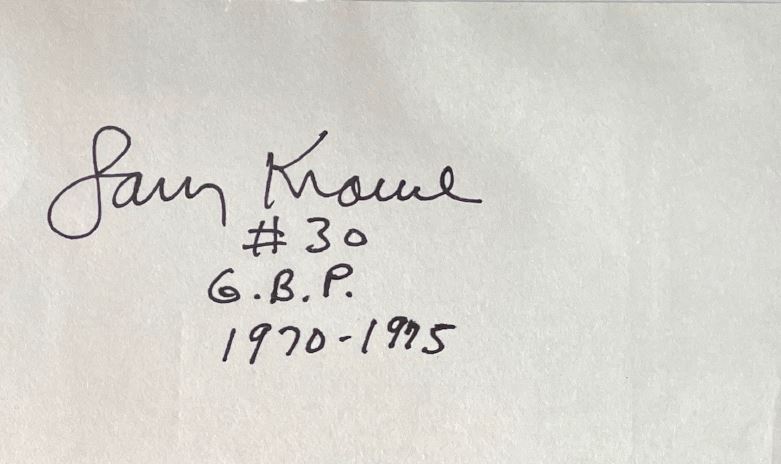 Larry Krause
#30
G.B.P.
1970-1975